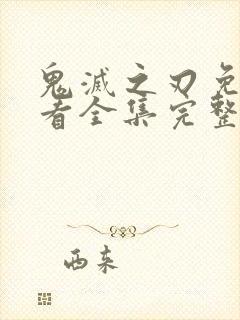 鬼滅之刃免
看全集完整
西东